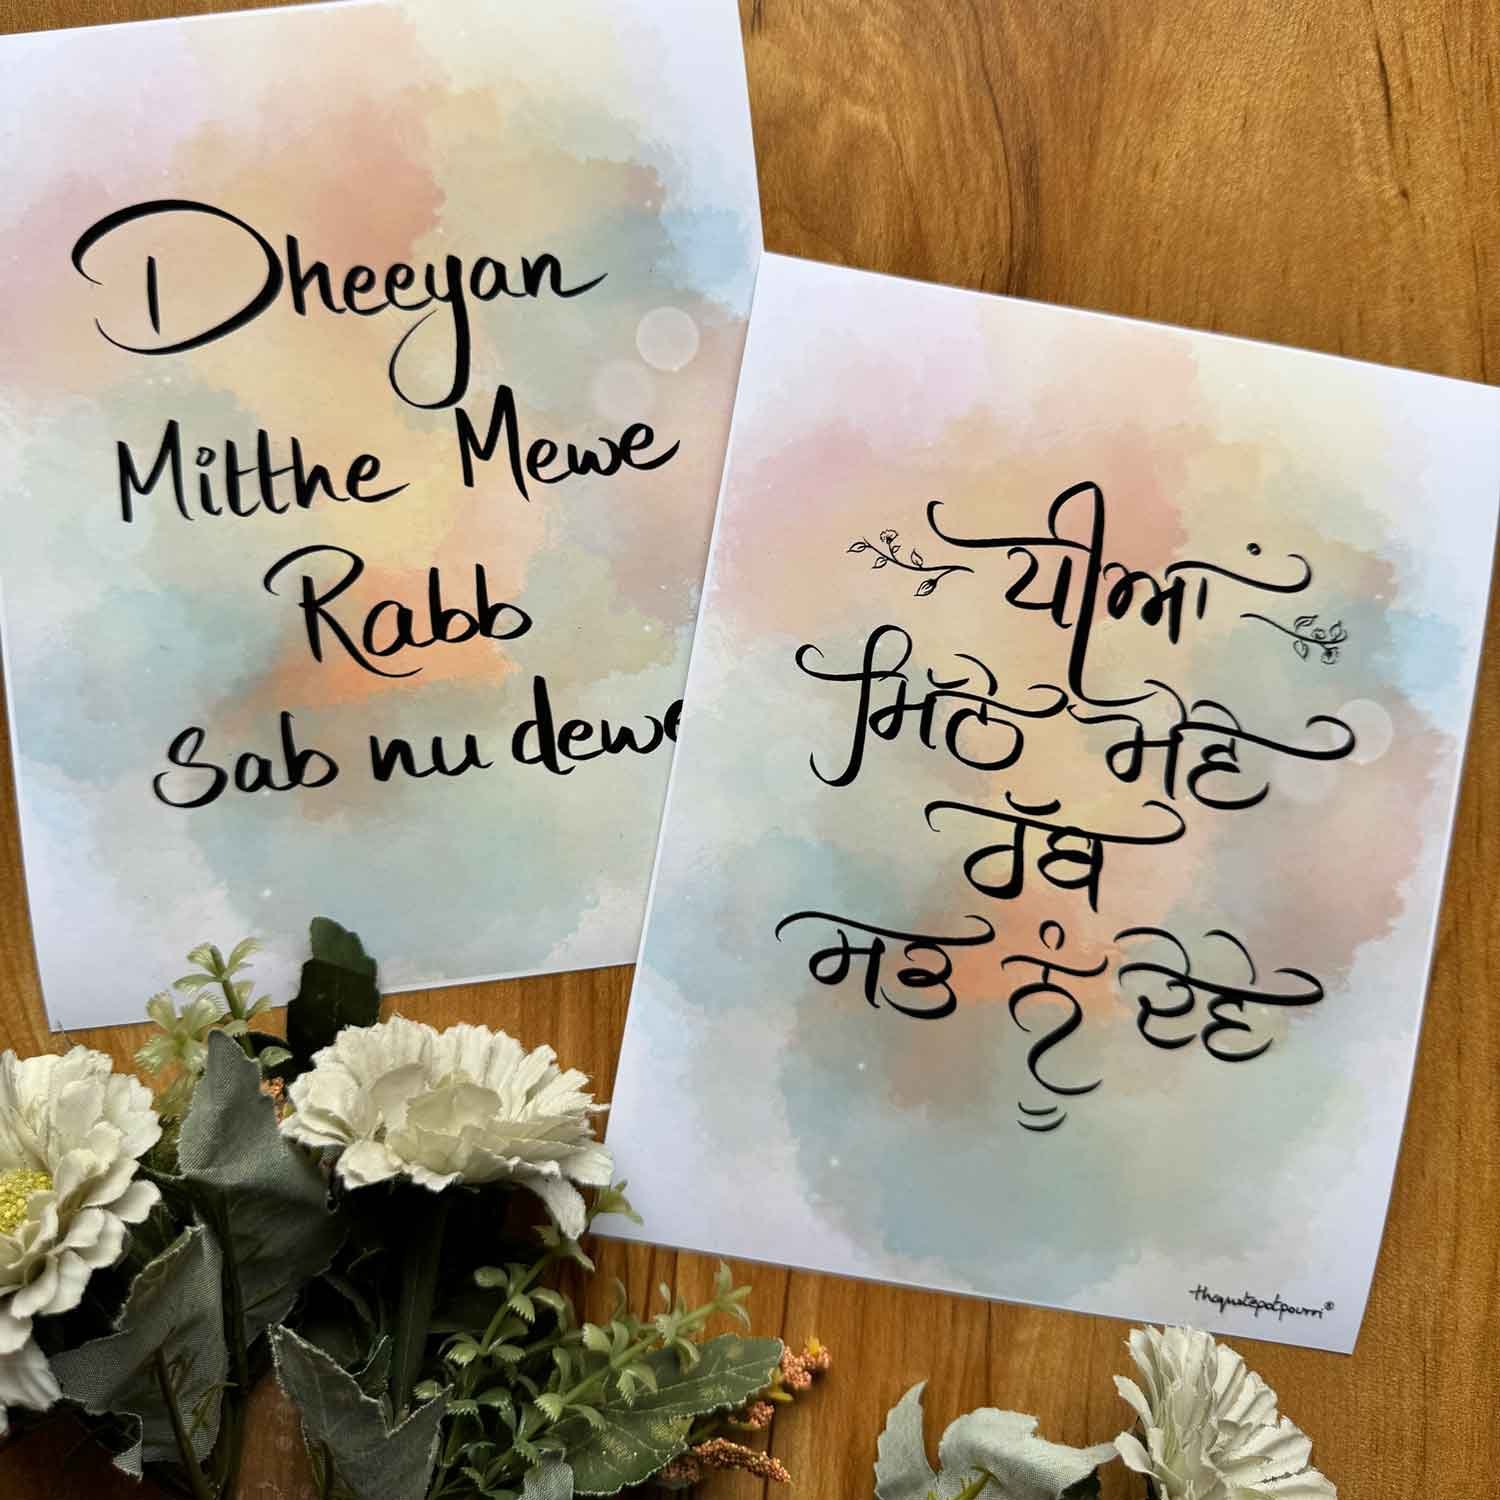 Dheeyan
Mitthe Mewe
Rabb
Sab nu dewe
ਧੀਆਂ
ਮਿੱਠੇ ਮੇਵੇ
ਰੱਬ
ਸਭ ਨੂੰ ਦੇਵੇ
thequotepotpourri®